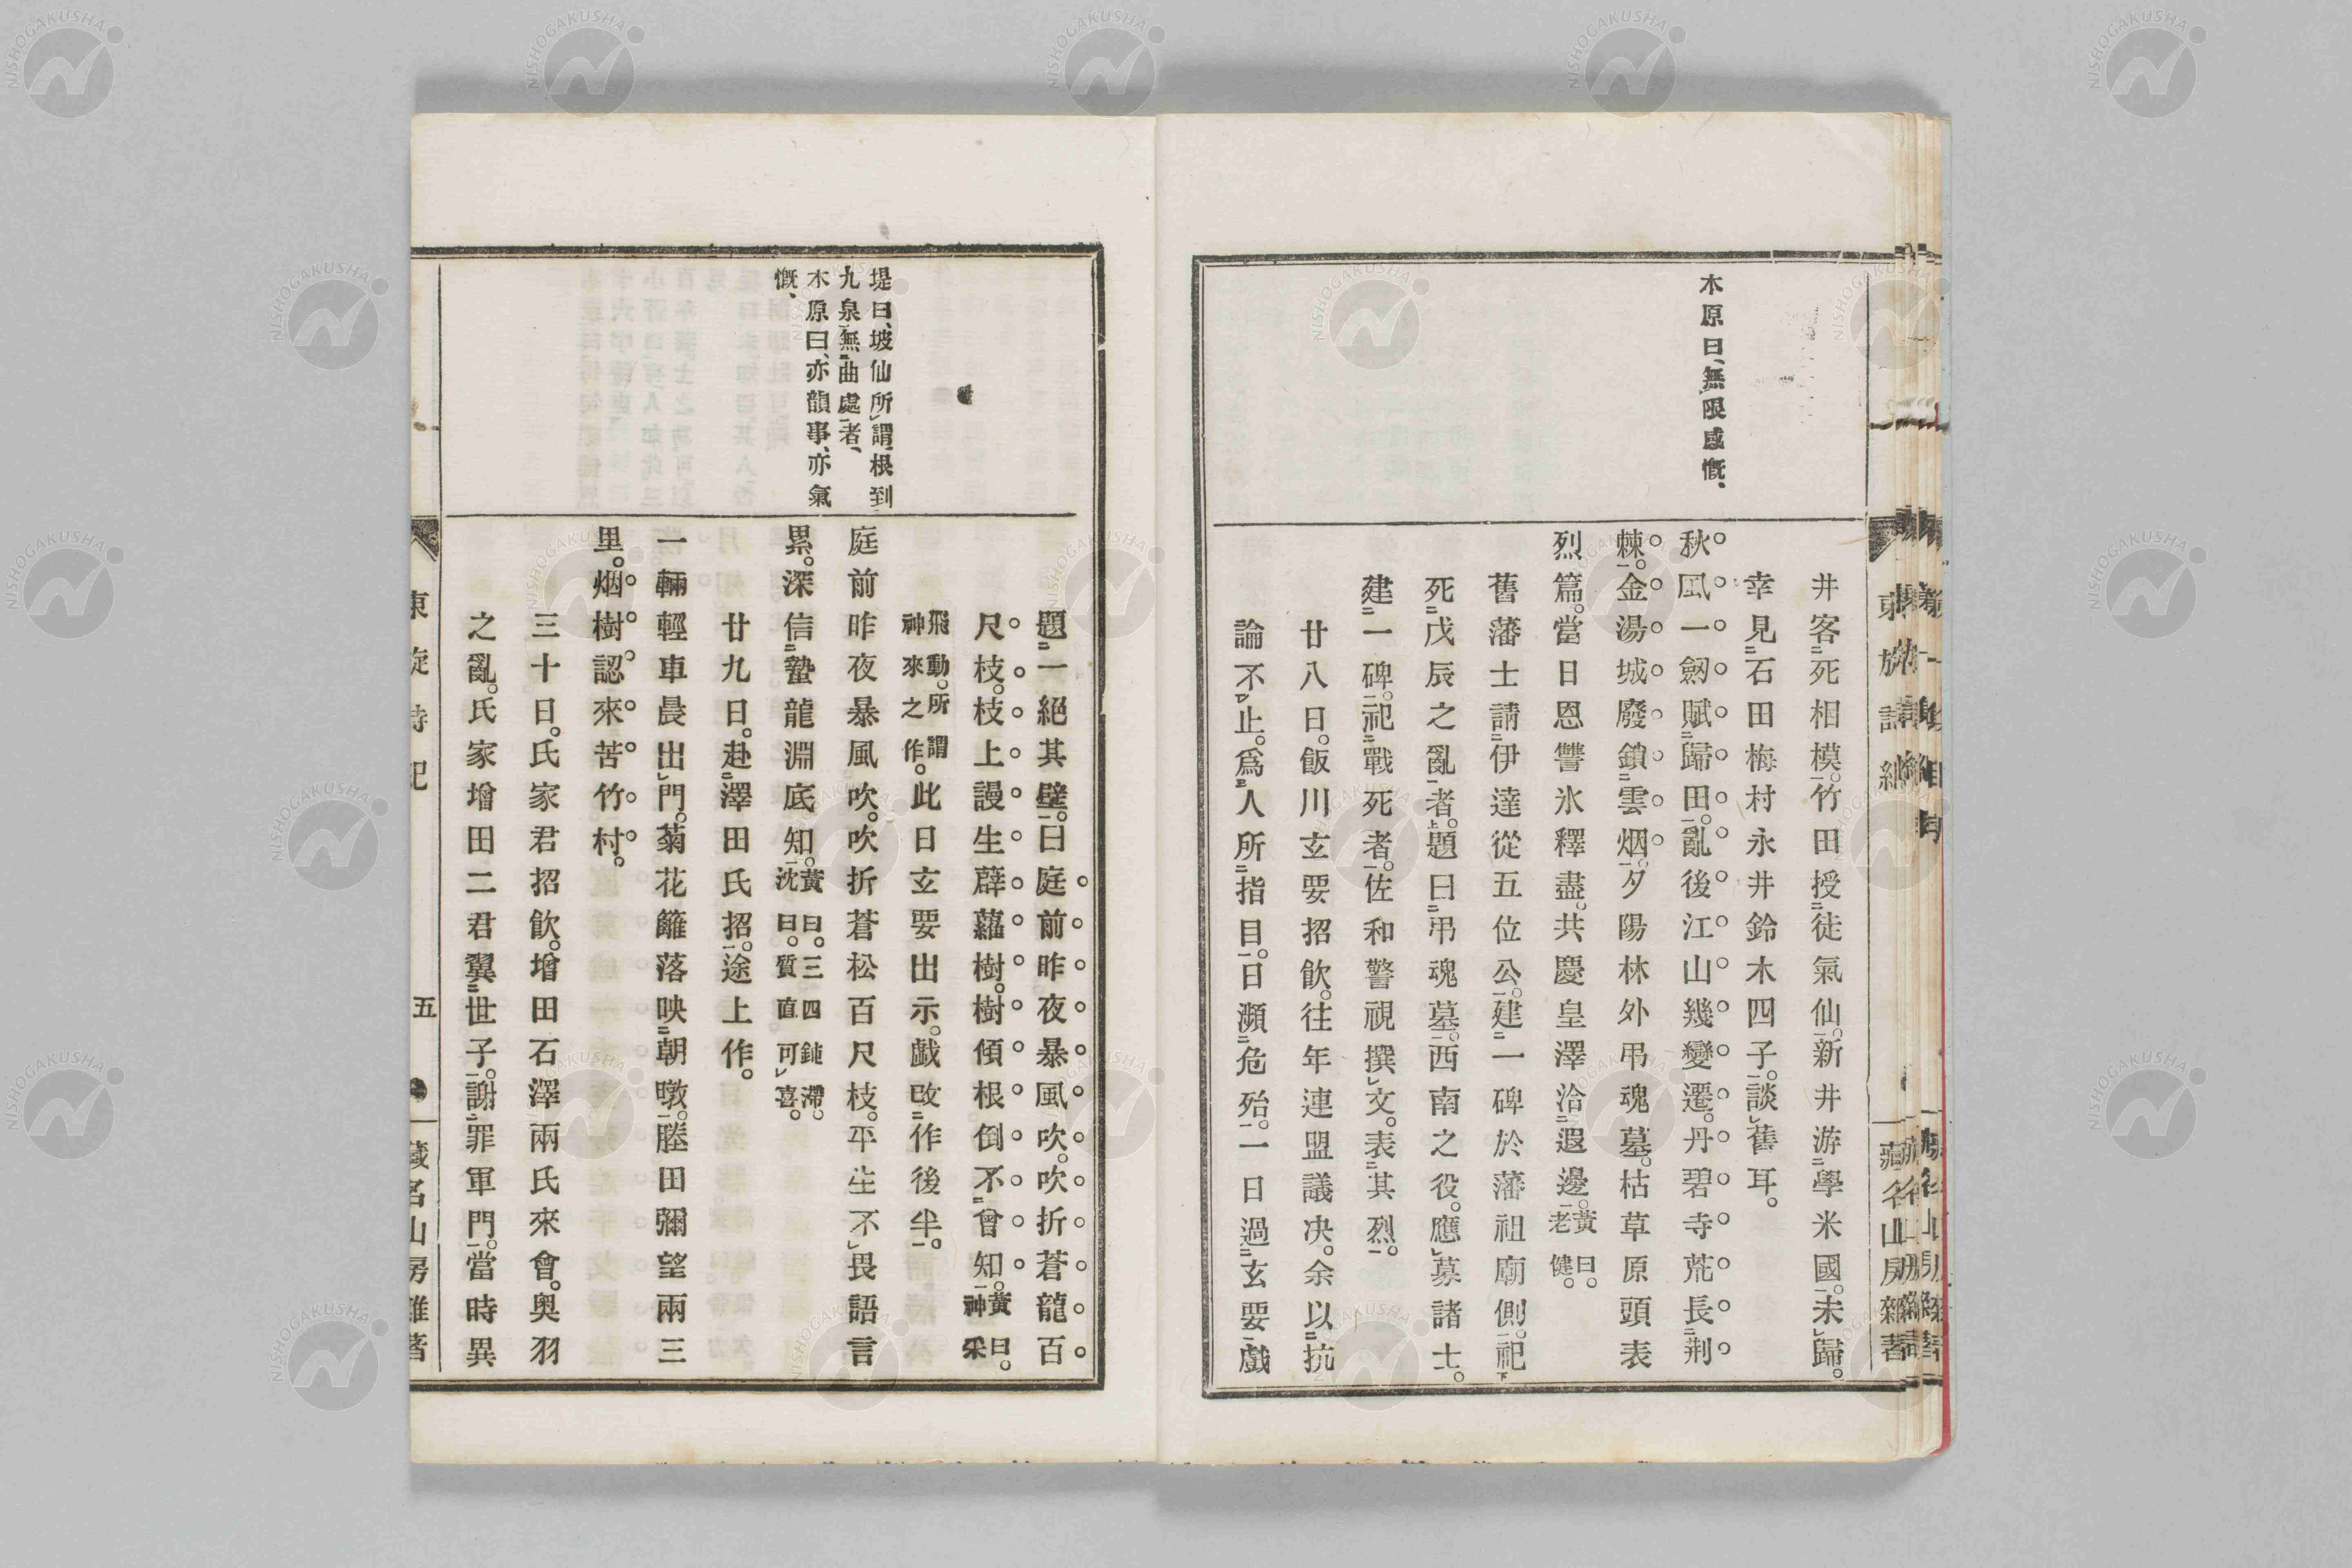 木原曰、無限感慨、
井客死相模。竹田授徒氣仙。新井游學米國。未歸。
幸見石田梅村永井鈴木四子。談舊耳。
秋風一劒賦歸田。亂後江山幾變遷。丹碧寺荒長荆
棘。金湯城廢鎖雲烟。夕陽林外弔魂墓。枯草原頭表
烈篇。當日恩讐氷釋盡。共慶皇澤洽遐邊。黃曰。老健。
舊藩士請伊達從五位公。建一碑於藩祖廟側。祀
死戊辰之亂者。題曰弔魂墓。西南之役。應募諸士。
建一碑。祀戰死者。佐和警視撰文。表其烈。
廿八日。飯川玄要招飮。往年連盟議决。余以抗
論不止。爲人所指目。日瀕危殆。一日過玄要戲
堤曰、坡仙所謂、根到
九泉無曲處者、
木原曰、亦韻事、亦氣
慨、
題一絕其壁。曰庭前昨夜暴風吹。吹折蒼龍百
尺枝。枝上謾生薜蘿樹。樹傾根倒不曾知。黃曰。神采
飛動。所謂神來之作。此日玄要出示。戲改作後半。
庭前昨夜暴風吹。吹折蒼松百尺枝。平生不畏語言
累。深信蟄龍淵底知。黃曰。三四鈍滯。沈曰。質直可喜。
廿九日。赴澤田氏招。途上作。
一輛輕車晨出門。菊花籬落映朝暾。塍田彌望兩三
里。烟樹認來苦竹村。
三十日。氏家君招飮。增田石澤兩氏來會。奥羽
之亂。氏家增田二君翼世子。謝罪軍門。當時異
五